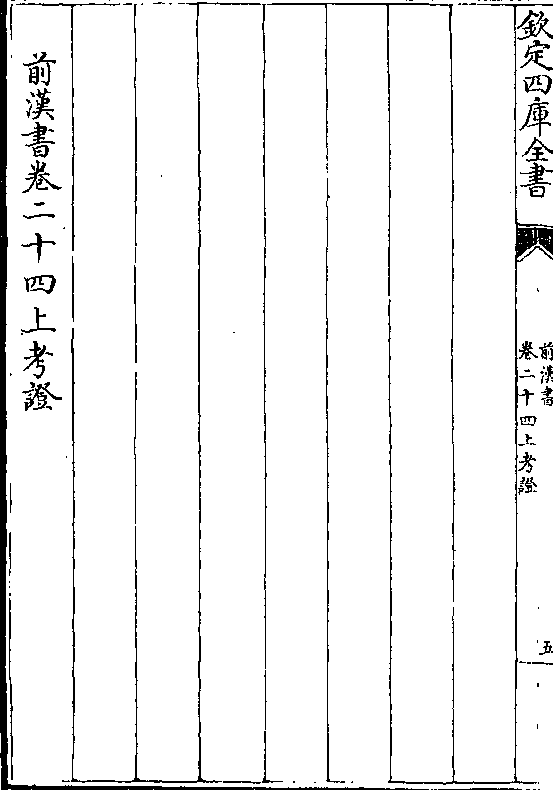 欽定四庫全書
前漢書
卷二十四上考證
五
前漢書卷二十四上考證